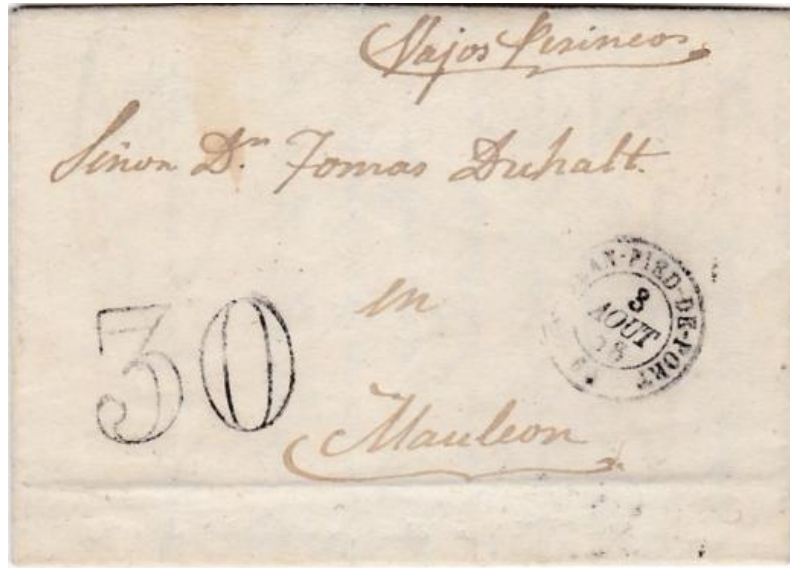 Vajos Perineos
Señor Dn Tomas Duhalt.
en
Mauleon
30
AN-PIED-DE-PORT
8
AOUT